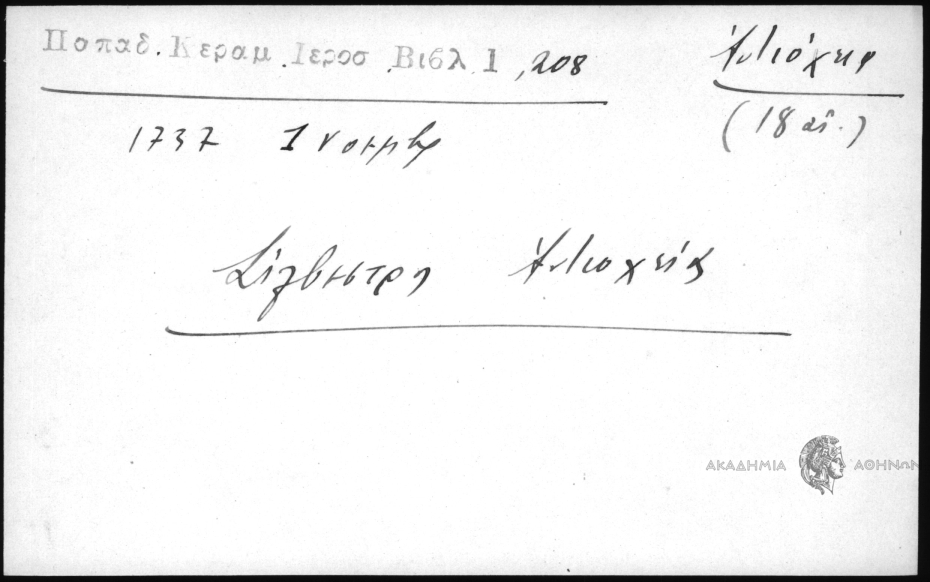 Παπαδ. Κεραμ. Ιεροσ. Βιβλ 1, 208 Ἀντιόχεια
(18 αἰ.)
1737 1 νοεμβρ
Σίλβεστρος Ἀντιοχείας
ΑΚΑΔΗΜΙΑ ΑΘΗΝΩΝ